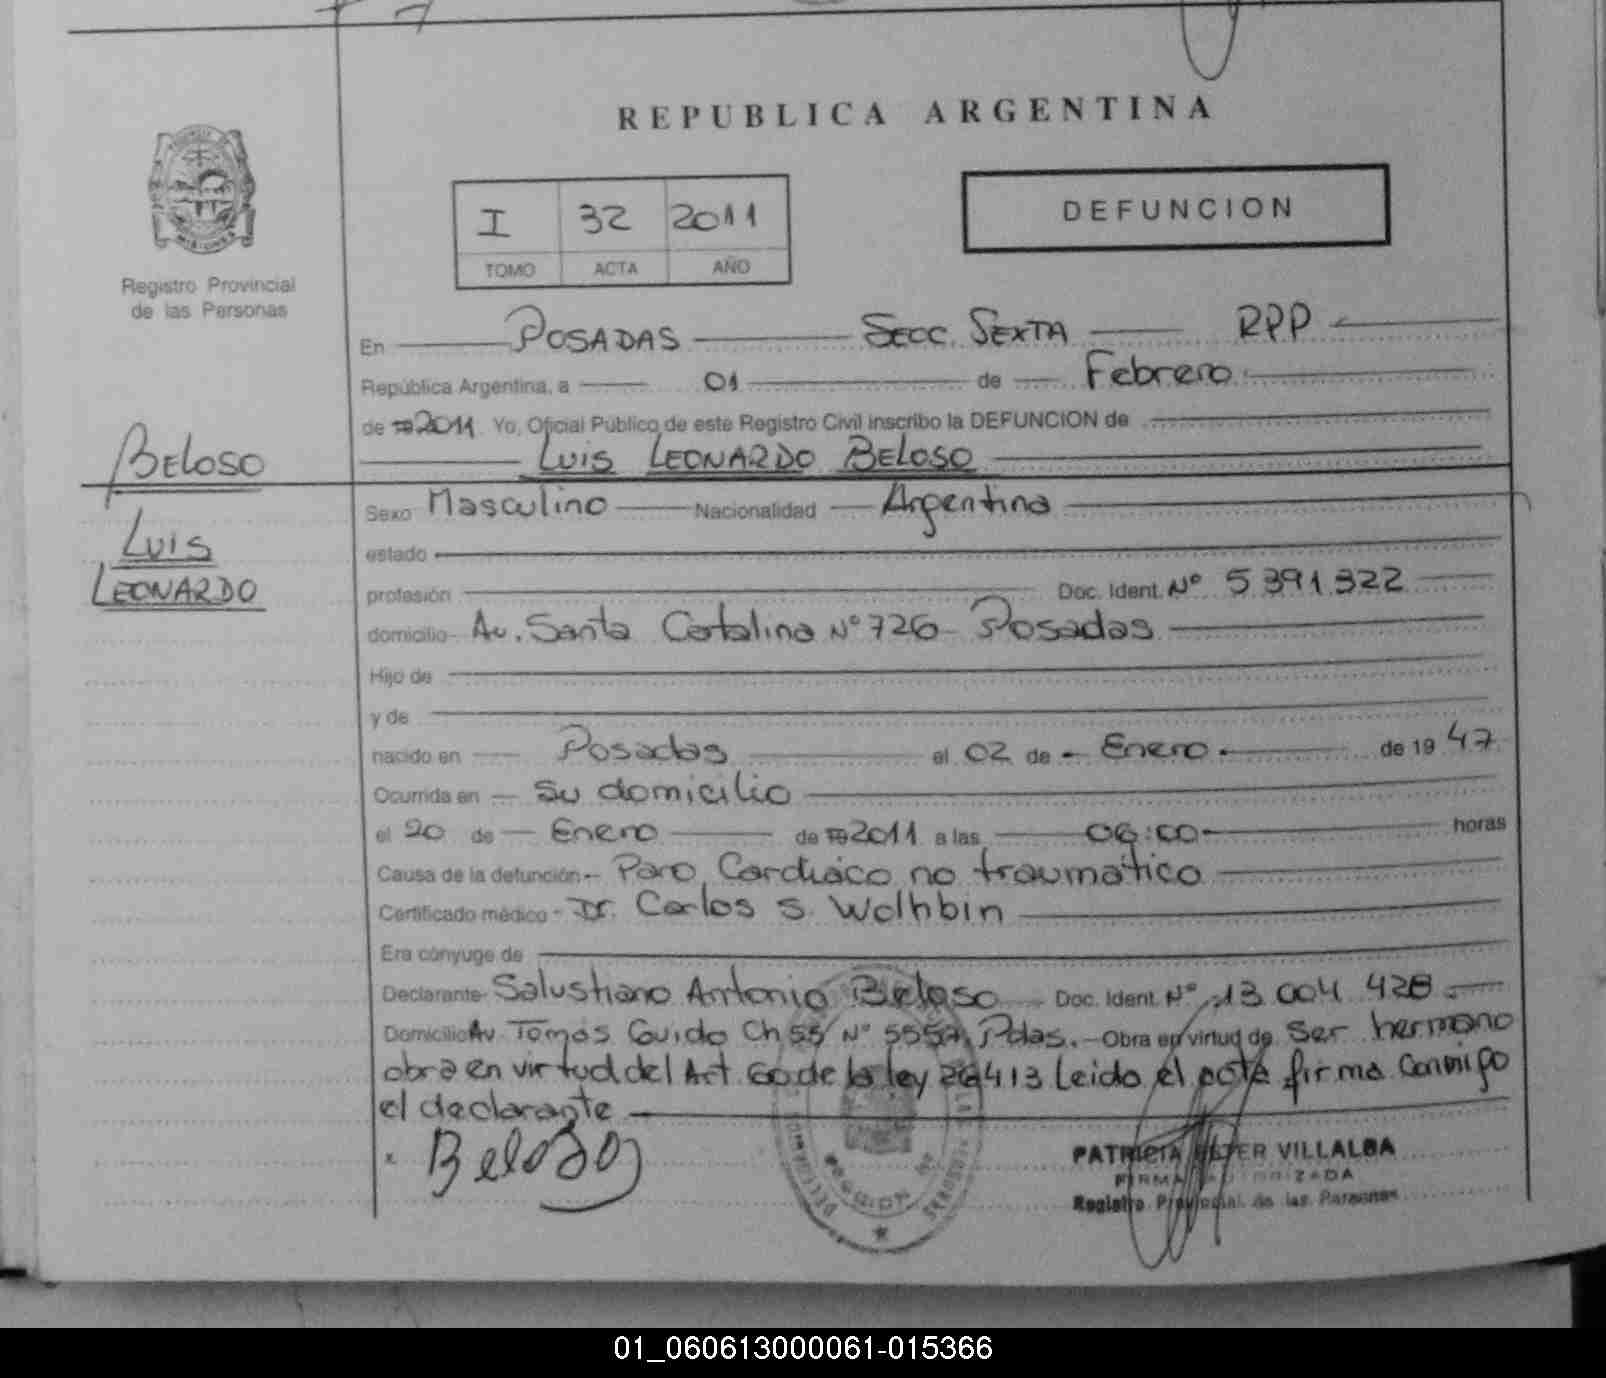 REPUBLICA ARGENTINA
I 32 2011
TOMO ACTA AÑO
DEFUNCION
MISIONES
Registro Provincial
de las Personas
En POSADAS SECC. SEXTA RPP
República Argentina, a 01 de Febrero
de 2011 Yo, Oficial Público de este Registro Civil inscribo la DEFUNCION de
LUIS LEONARDO BELOSO
BELOSO
LUIS
LEONARDO
Sexo Masculino Nacionalidad Argentina
estado
profesión Doc. Ident. Nº 5.391.322
domicilio Av. Santa Catalina Nº 726 Posadas
Hijo de
y de
nacido en Posadas el 02 de Enero de 19 47
Ocurrida en Su domicilio
el 20 de Enero de 2011 a las 06:00 horas
Causa de la defunción Paro Cardiaco no traumático
Certificado médico Dr. Carlos S. Wolhbin
Era cónyuge de
Declarante Salustiano Antonio Beloso Doc. Ident. Nº 13 004 428
Domicilio Av Tomás Guido Ch 55 Nº Pdas. Obra en virtud de Ser hermano
obra en virtud del Art. 60 de la ley 26413 Leido el acta firma conmigo
el declarante
Beloso
PATRICIA VILLALBA
FIRMA AUTORIZADA
Registro Provincial de las Personas
01_060613000061-015366